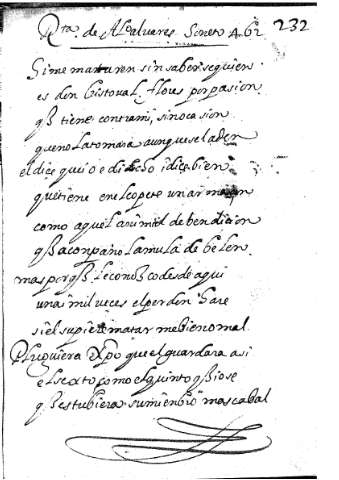 Rta. de Alvalvares Soneto 462 232
Si me mataren sin saber se quien
es don Cristoval flores por pasion
q̃ tiene contra mi, sin ocasion
que no la tomara aunque se la den
el dice que io e dicho i dice bien
que tiene en el copete un ar
como aquel animal de bendicion
q̃ aconpaño la mula de belen
mas por q̃ le conozco desde aqui
una i mil veces el perdon hare
si el supiere matar me bien o mal
Pluguiera Xpo que el guardara asi
el sexto como el quinto q̃ io se
q̃ estubiera su mienbro mas cabal